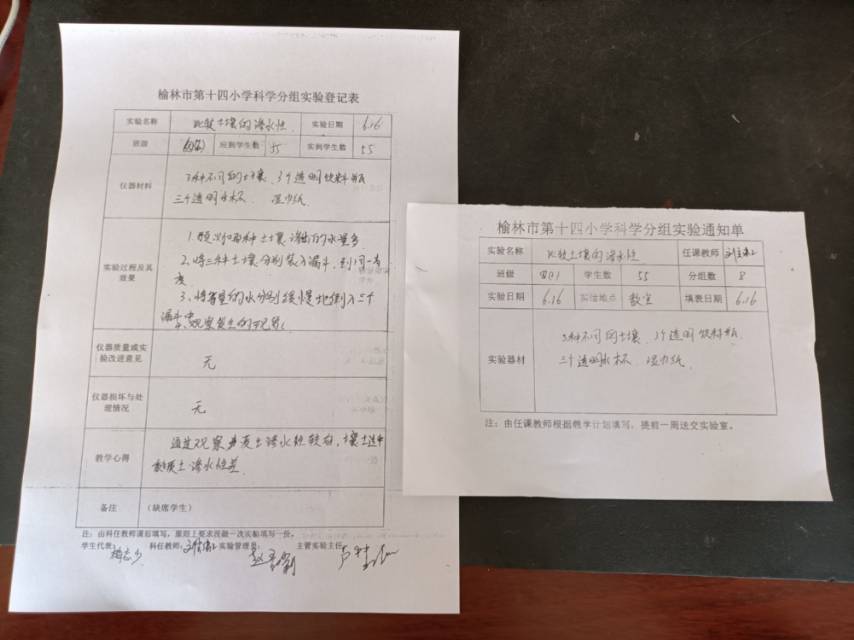 榆林市第十四小学科学分组实验登记表
实验名称 比较土壤的渗水性 实验日期 6.16
班级 应到学生数 55 实到学生数 55
仪器材料 3种不同的土壤、3个透明饮料瓶
三个透明水杯 湿力纸
实验过程及其效果
1.预测哪种土壤渗出的水量多
2、将三种土壤分别装入漏斗,到同一高
度
3、将等量的水分别缓慢地倒入三个
漏斗中
观察发生的现象
仪器质量或实验改进意见 无
仪器损坏与处理情况 无
教学心得 通过观察 质土渗水性较好,壤土适中
黏质土渗水性差
备注 (缺席学生)
注:由科任教师课后填写,原则上要求没做一次实验填写一份。
学生代表: 科任教师: 实验管理员: 主管实验主任:
榆林市第十四小学科学分组实验通知单
实验名称 比较土壤的渗水性 任课教师
班级 四(1) 学生数 55 分组数 8
实验日期 6.16 实验地点 教室 填表日期 6.16
实验器材 3种不同的土壤、3个透明饮料瓶
三个透明水杯 湿力纸
注:由任课教师根据教学计划填写,提前一周送交实验室。